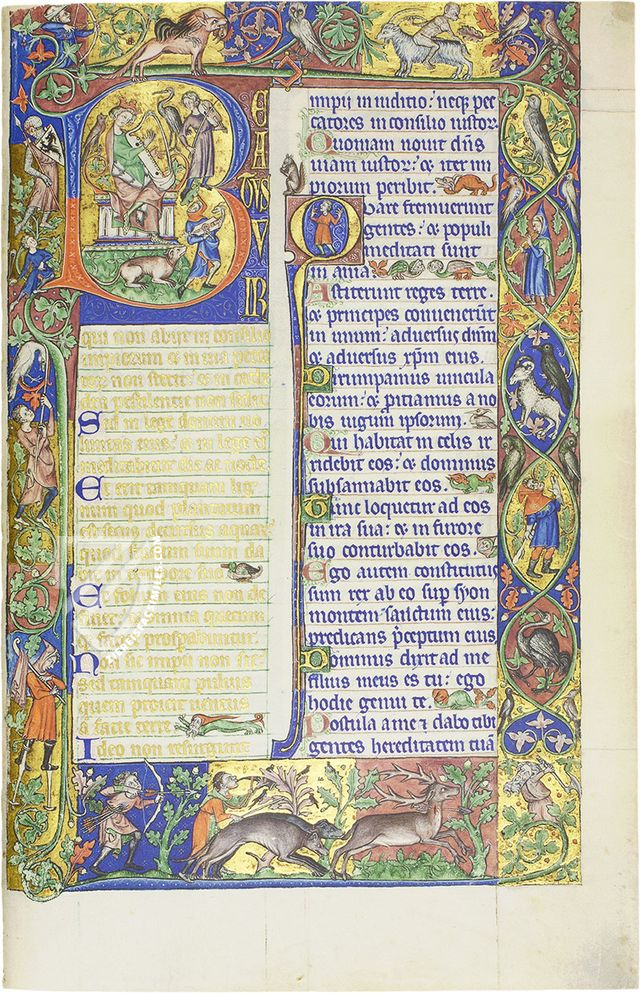 B
EATUS
V
IR
qui non abijt in consilio
impiorum & in uia pecca
tor non stetit: & in cathe
dra pestilentie non sedit.
Sed in lege domini uo
luntas eius: & in lege ei
meditabitur die ac nocte.
Et erit tamquam lig
num quod plantatum
est secus decursus aquar
quod fructum suum da
bit in tempore suo.
Et folium eius non de
fluet: & omnia quecum
q faciet prosperabuntur.
Non sic impii non sic:
sed tamquam puluis
quem proicit uentus
a facie terre.
Ideo non resurgunt
impij in iuditio: neq; pec
catores in consilio iustor
Quoniam nouit dns
uiam iustor: & iter im
piorum peribit.
Quare fremuerunt
gentes: & populi
meditati sunt
in ania
Astiterunt reges terre.
& principes conuenerūt
in unum: aduersus dnm
& aduersus xpm eius.
Dirumpamus uincula
eorum: & proitiamus a no
bis iugum ipsorum.
Qui habitat in celis ir
ridebit eos: & dominus
subsannabit eos.
Tunc loquetur ad eos
in ira sua: & in furore
suo conturbabit eos.
Ego autem constitutus
sum rex ab eo sup syon
montem sanctum eius:
predicans pceptum eius
Dominus dixit ad me
filius meus es tu: ego
hodie genui te.
Postula a me & dabo tibi
gentes hereditatem tuā